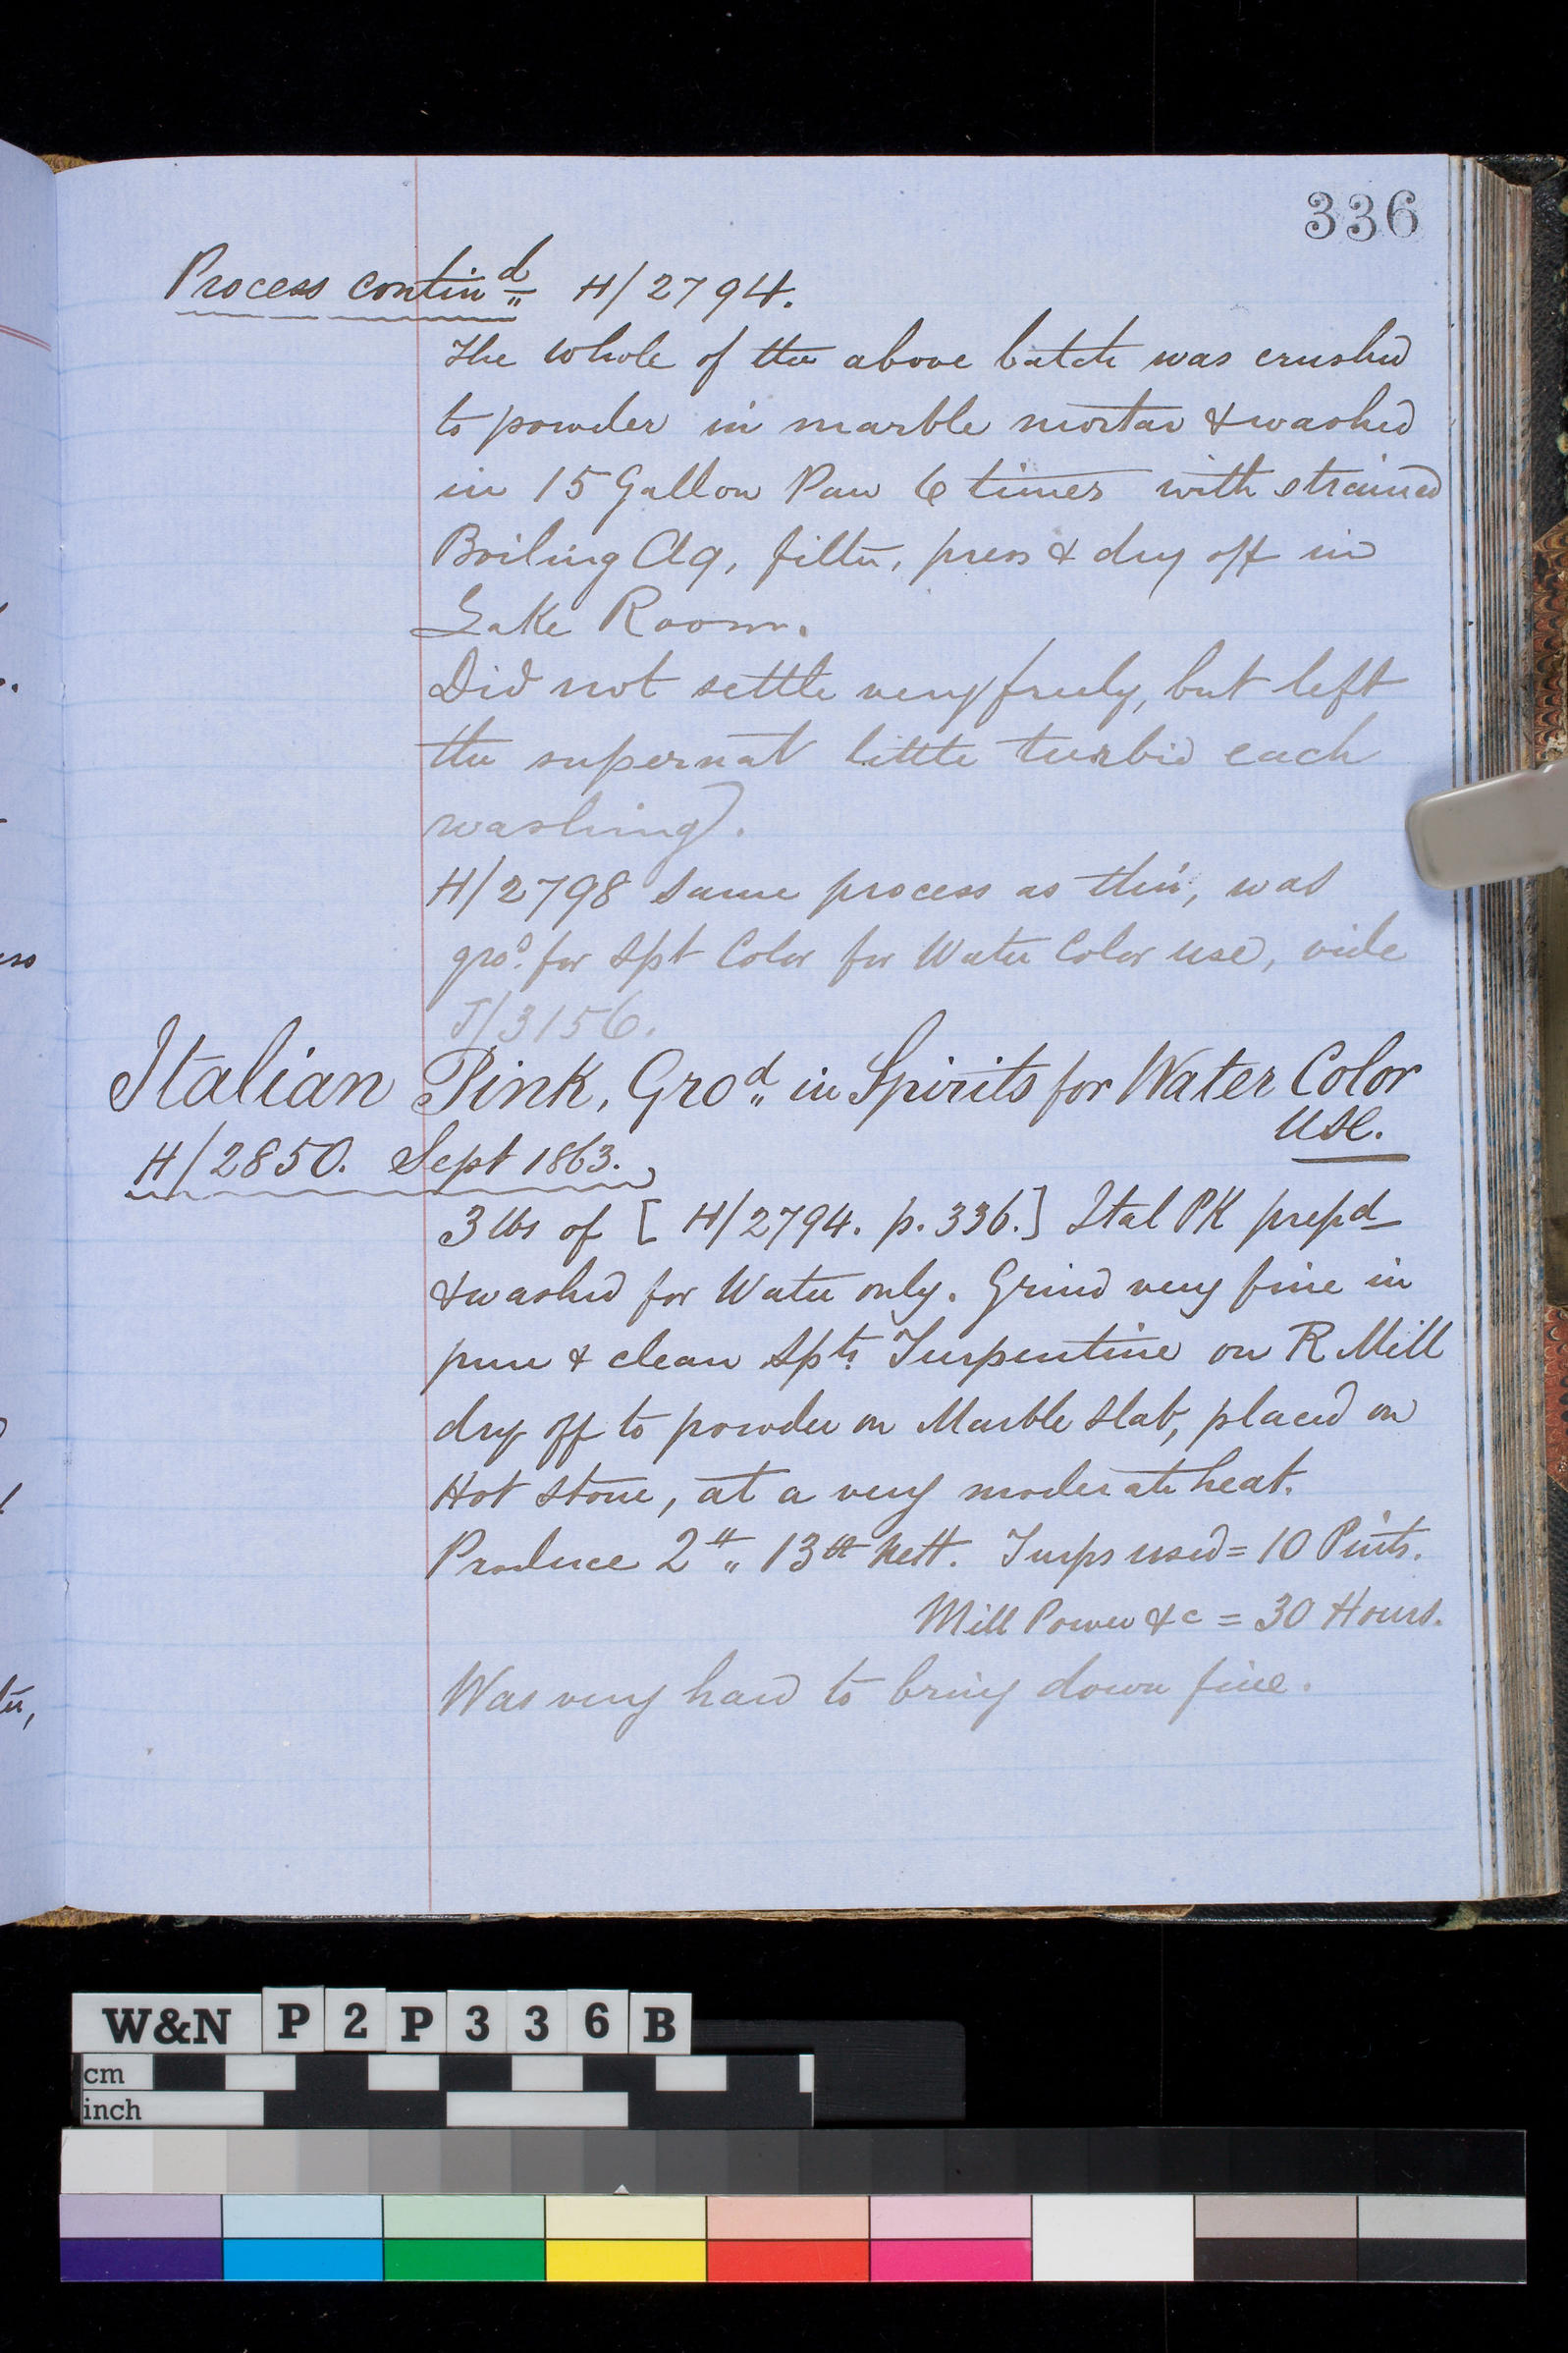 336
Process contind H/2794.
The whole of the above batch was crushed
to powder in marble mortar & washed
in 15 Gallon Pan 6 times with strained
Boiling Aq, filter, press & dry off in
Lake Room.
Did not settle very freely, but left
the supernat little turbid each
washing.
H/2798 same process as this, was
grod. for Spt Color for Water Color use, vide
J/3156.
Italian Pink, Grod in Spirits for Water Color
use.
H/2850. Sept 1863.
3 lbs of [ H/2794. p. 336.] Ital PK prepd
& washed for Water only. Grind very fine in
pure & clean Spts Turpentine on R Mill
dry off to powder on Marble Slab, placed on
Hot Stone, at a very moderate heat.
Produce 2 " 13 nett. Turps used = 10 Pints.
Mill Power &c = 30 Hours.
Was very hard to bring down fine.
W&N P2P336B
cm
inch